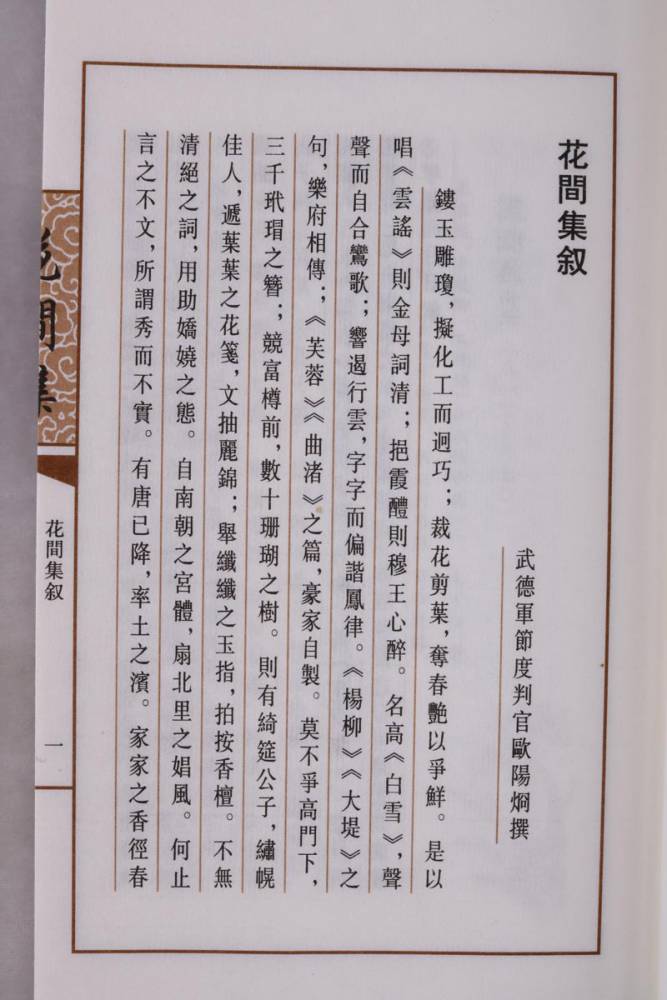 花間集叙
武德軍節度判官歐陽烱撰
鏤玉雕瓊，擬化工而迥巧；裁花剪葉，奪春艷以爭鮮。是以
唱《雲謠》則金母詞清；挹霞醴則穆王心醉。名高《白雪》，聲
聲而自合鸞歌；響遏行雲，字字而偏諧鳳律。《楊柳》《大堤》之
句，樂府相傳；《芙蓉》《曲渚》之篇，豪家自製。莫不爭高門下，
三千玳瑁之簪；競富樽前，數十珊瑚之樹。則有綺筵公子，繡幌
佳人，遞葉葉之花箋，文抽麗錦；舉纖纖之玉指，拍按香檀。不無
清絕之詞，用助嬌嬈之態。自南朝之宮體，扇北里之娼風。何止
言之不文，所謂秀而不實。有唐已降，率土之濱。家家之香徑春
間集
花間集叙
一